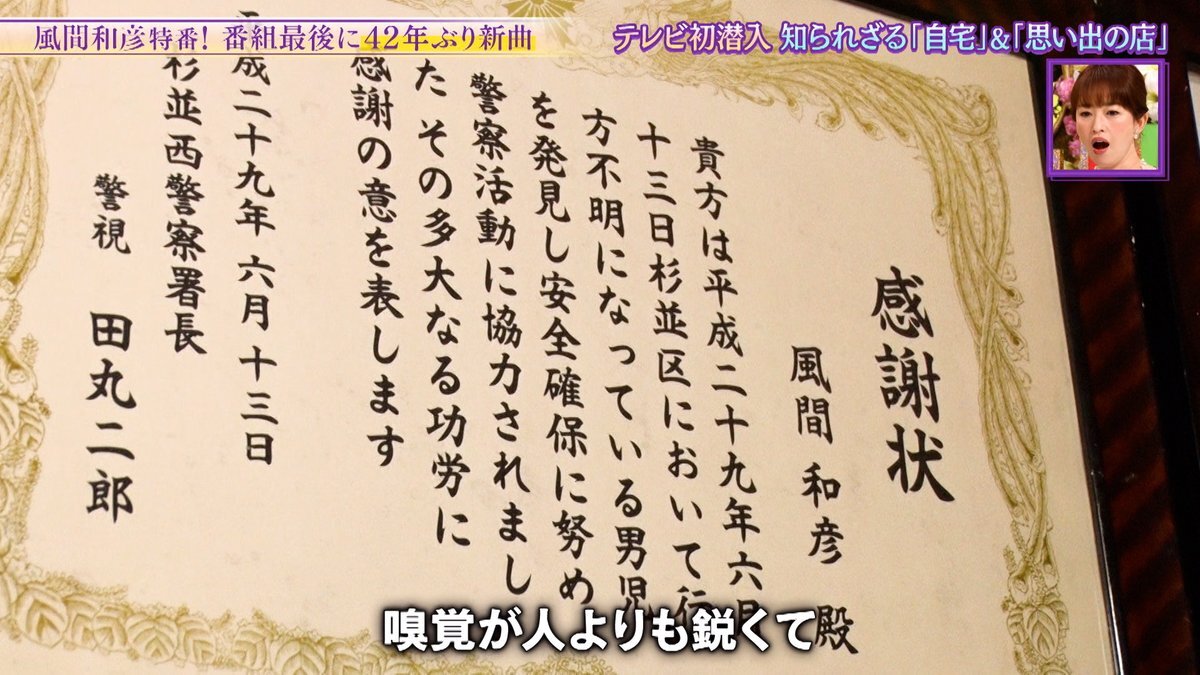 風間和彦特番！番組最後に42年ぶり新曲
テレビ初潜入 知られざる「自宅」&「思い出の店」
感謝状
風間 和彦 殿
貴方は平成二十九年六月
十三日杉並区において行
方不明になっている男児
を発見し安全確保に努め
警察活動に協力されまし
た その多大なる功労に
感謝の意を表します
成二十九年 六月 十三日
杉並西警察署長
警視 田丸二郎
嗅覚が人よりも鋭くて